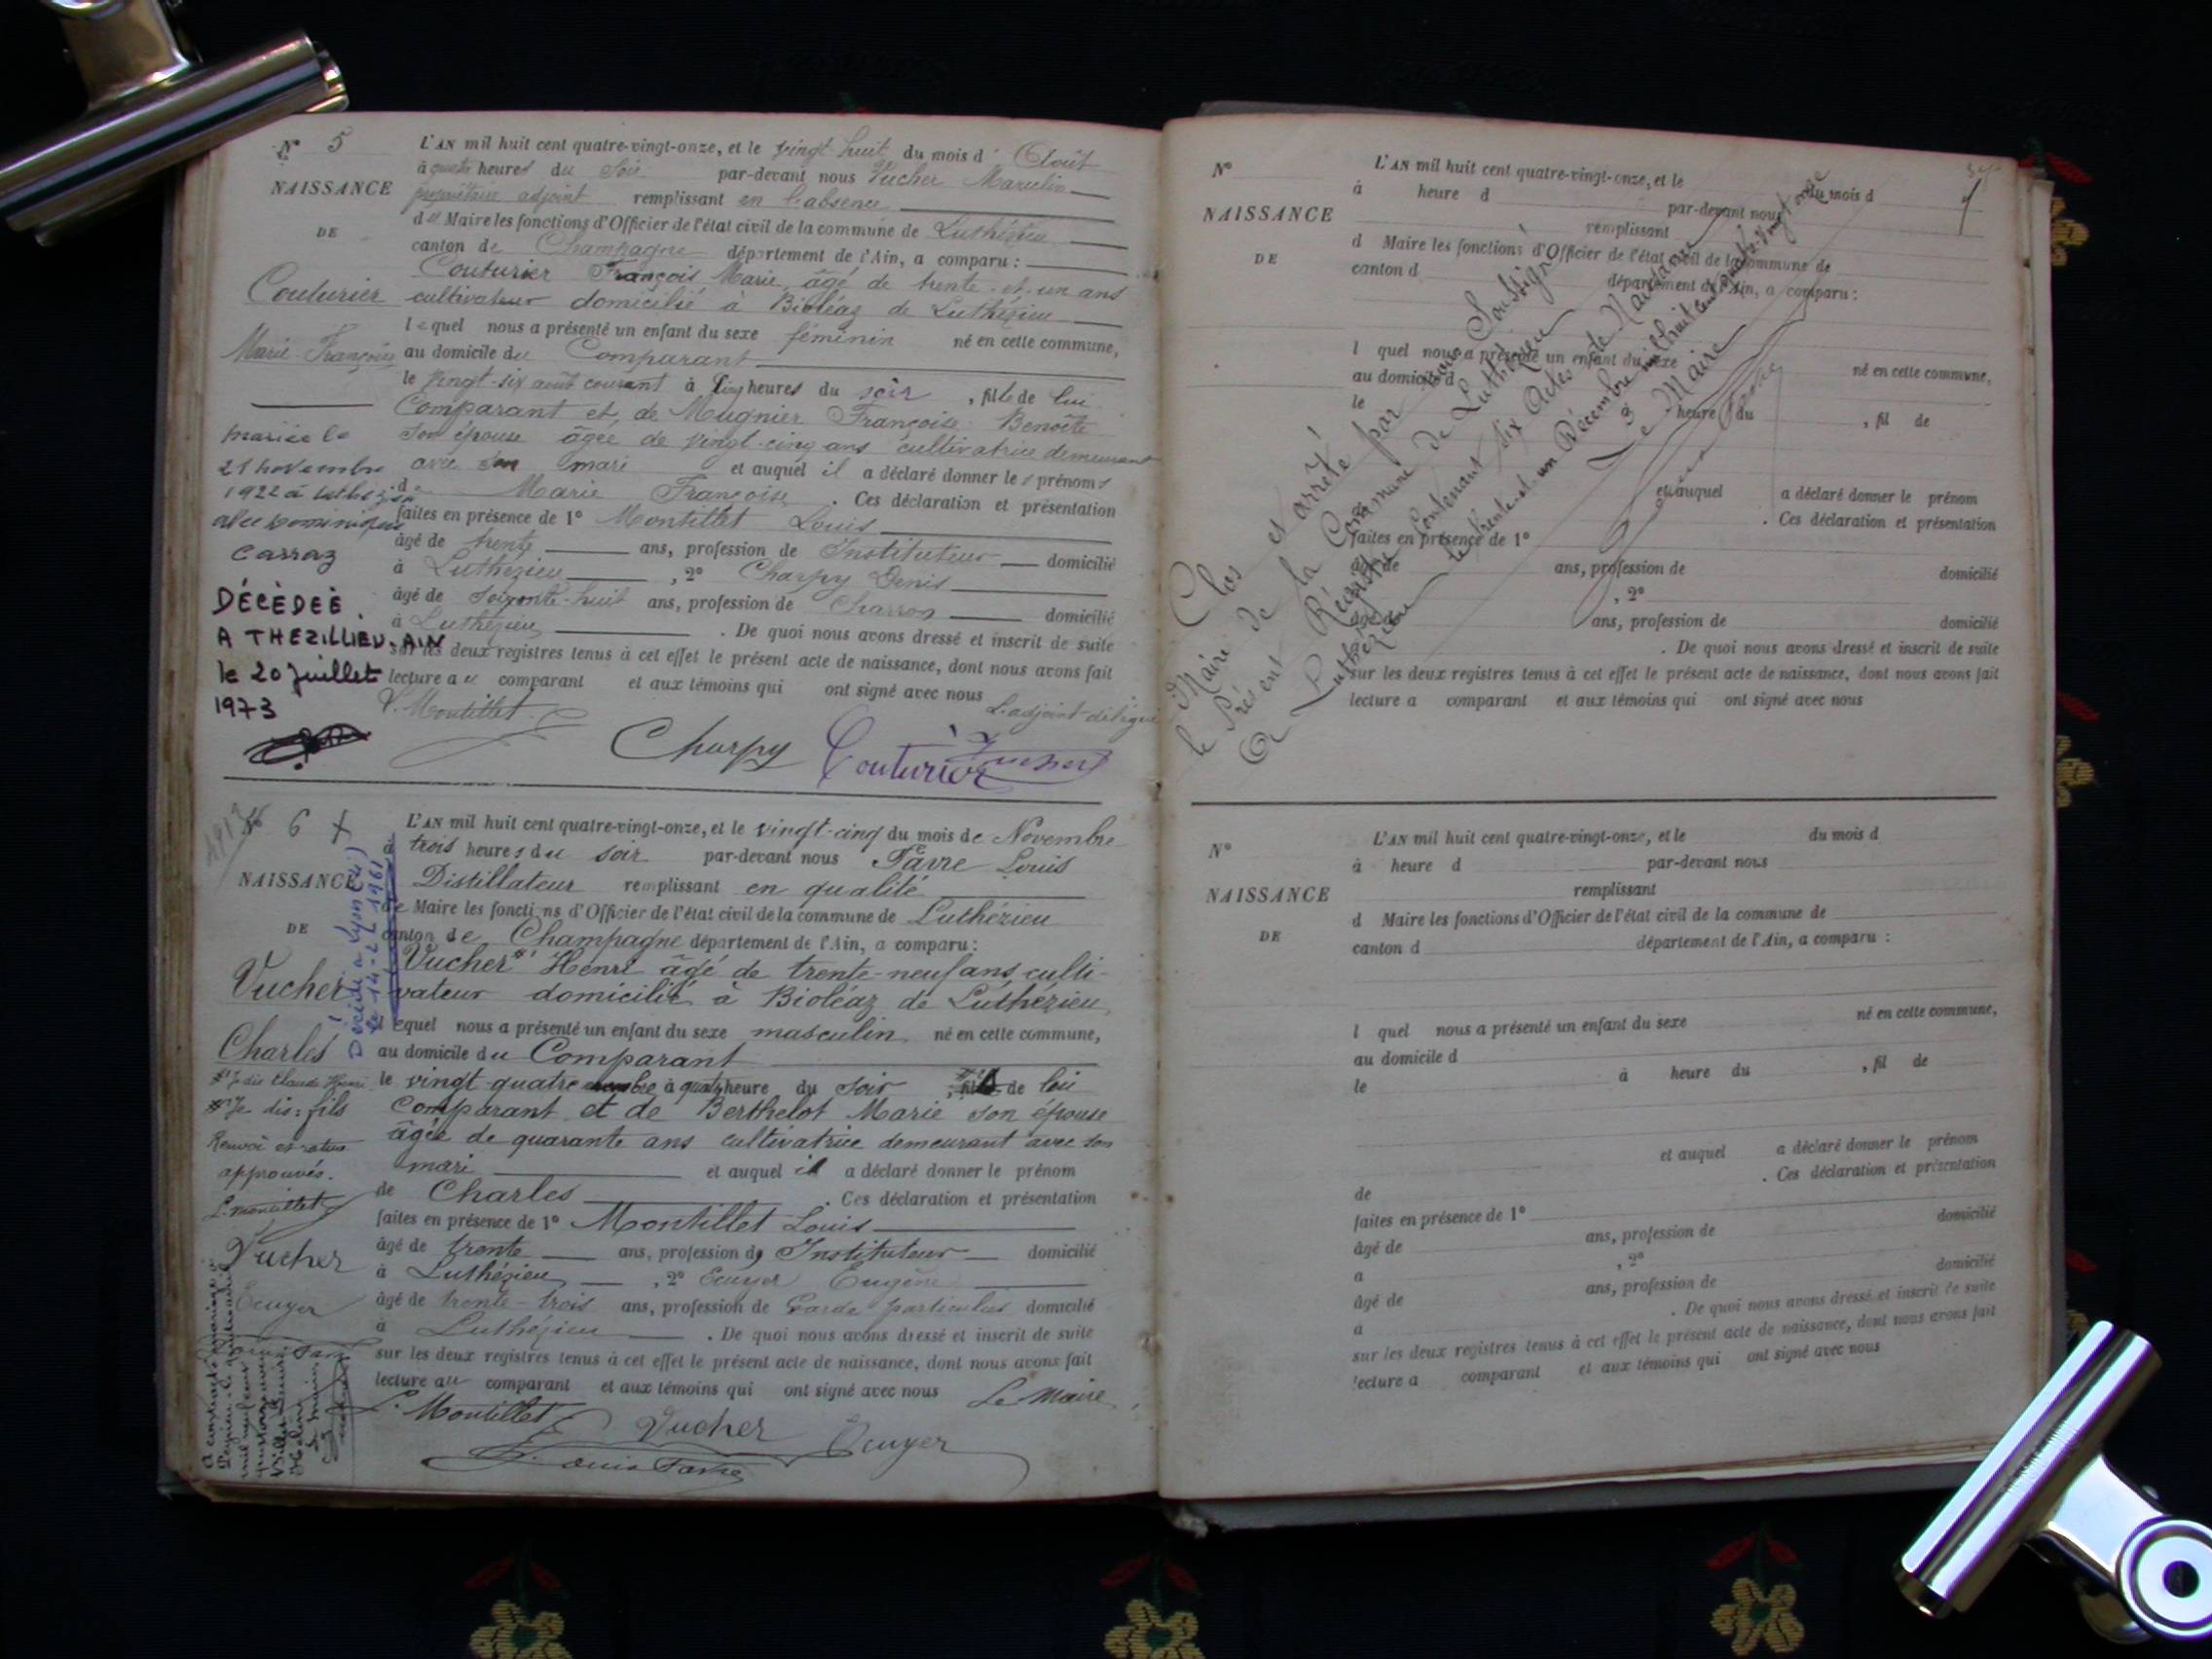 N° 5
NAISSANCE
DE
Couturier
Marie-Françoise
mariée le
21 novembre
1922 à
avec Dominique
Carraz
DÉCÉDÉE
A THEZILLIEU. AIN
le 20 Juillet
1973
L'AN mil huit cent quatre-vingt-onze, et le vingt-huit du mois d'Août
à quatre heures du Soir par-devant nous Vucher Marcelin
propriétaire adjoint remplissant en l'absence
du Maire les fonctions d'Officier de l'état civil de la commune de Luthézieu
canton de Champagne département de l'Ain, a comparu :
Couturier François Marie, âgé de trente-et-un ans
cultivateur domicilié à Bioléaz de Luthézieu
lequel nous a présenté un enfant du sexe féminin né en cette commune,
au domicile du Comparant
le vingt-six août courant à cinq heures du soir, fille de lui
Comparant et de Mugnier Françoise Benoîte
son épouse âgée de vingt-cinq ans cultivatrice demeurant
avec son mari et auquel il a déclaré donner les prénoms
de Marie Françoise. Ces déclaration et présentation
faites en présence de 1° Montillet Louis
âgé de trente ans, profession de Instituteur domicilié
à Luthézieu, 2° Charpy Denis
âgé de soixante-huit ans, profession de Charron domicilié
à Luthézieu. De quoi nous avons dressé et inscrit de suite
sur les deux registres tenus à cet effet le présent acte de naissance, dont nous avons fait
lecture au comparant et aux témoins qui ont signé avec nous
L. Montillet L'adjoint délégué
Charpy Couturier Vucher
N° 6
NAISSANCE
DE
Vucher
Charles
Décédé à Lyon
Je dis Claude Henri
Je dis : fils
Renvoi et ratures
approuvés.
L. Montillet
Vucher
Ecuyer
Louis Favre
L'AN mil huit cent quatre-vingt-onze, et le vingt-cinq du mois de Novembre
à trois heures du soir par-devant nous Favre Louis
Distillateur remplissant en qualité
de Maire les fonctions d'Officier de l'état civil de la commune de Luthézieu
canton de Champagne département de l'Ain, a comparu :
Vucher Henri âgé de trente-neuf ans, culti-
vateur domicilié à Bioléaz de Luthézieu,
lequel nous a présenté un enfant du sexe masculin né en cette commune,
au domicile du Comparant
le vingt-quatre à quatre heure du soir, de lui
Comparant et de Berthelot Marie son épouse
âgée de quarante ans cultivatrice demeurant avec son
mari et auquel il a déclaré donner le prénom
de Charles. Ces déclaration et présentation
faites en présence de 1° Montillet Louis
âgé de trente ans, profession de Instituteur domicilié
à Luthézieu, 2° Ecuyer Eugène
âgé de trente-trois ans, profession de Garde particulier domicilié
à Luthézieu. De quoi nous avons dressé et inscrit de suite
sur les deux registres tenus à cet effet le présent acte de naissance, dont nous avons fait
lecture au comparant et aux témoins qui ont signé avec nous Le Maire,
L. Montillet Vucher Ecuyer
Louis Favre
N°
NAISSANCE
DE
L'AN mil huit cent quatre-vingt-onze, et le du mois d
à heure d par-devant nous
remplissant
d Maire les fonctions d'Officier de l'état civil de la commune de
canton d département de l'Ain, a comparu :
l quel nous a présenté un enfant du sexe né en cette commune,
au domicile d
le heure du , fil de
et auquel a déclaré donner le prénom
. Ces déclaration et présentation
faites en présence de 1°
âgé de ans, profession de domicilié
, 2°
âgé de ans, profession de domicilié
. De quoi nous avons dressé et inscrit de suite
sur les deux registres tenus à cet effet le présent acte de naissance, dont nous avons fait
lecture a comparant et aux témoins qui ont signé avec nous
Clos et arrêté par nous Soussigné
le Maire de la Commune de Luthézieu
le Présent Régistre Contenant six Actes de Naissances
à Luthézieu le trente-et-un Décembre mil huit cent quatre-vingt onze
Le Maire
Louis Favre
N°
NAISSANCE
DE
L'AN mil huit cent quatre-vingt-onze, et le du mois d
à heure d par-devant nous
remplissant
d Maire les fonctions d'Officier de l'état civil de la commune de
canton d département de l'Ain, a comparu :
l quel nous a présenté un enfant du sexe né en cette commune,
au domicile d
le à heure du , fil de
et auquel a déclaré donner le prénom
de . Ces déclaration et présentation
faites en présence de 1°
âgé de ans, profession de domicilié
a , 2°
âgé de ans, profession de domicilié
a . De quoi nous avons dressé et inscrit de suite
sur les deux registres tenus à cet effet le présent acte de naissance, dont nous avons fait
lecture a comparant et aux témoins qui ont signé avec nous